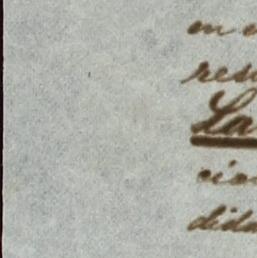 en e
resu
La
cion
dida